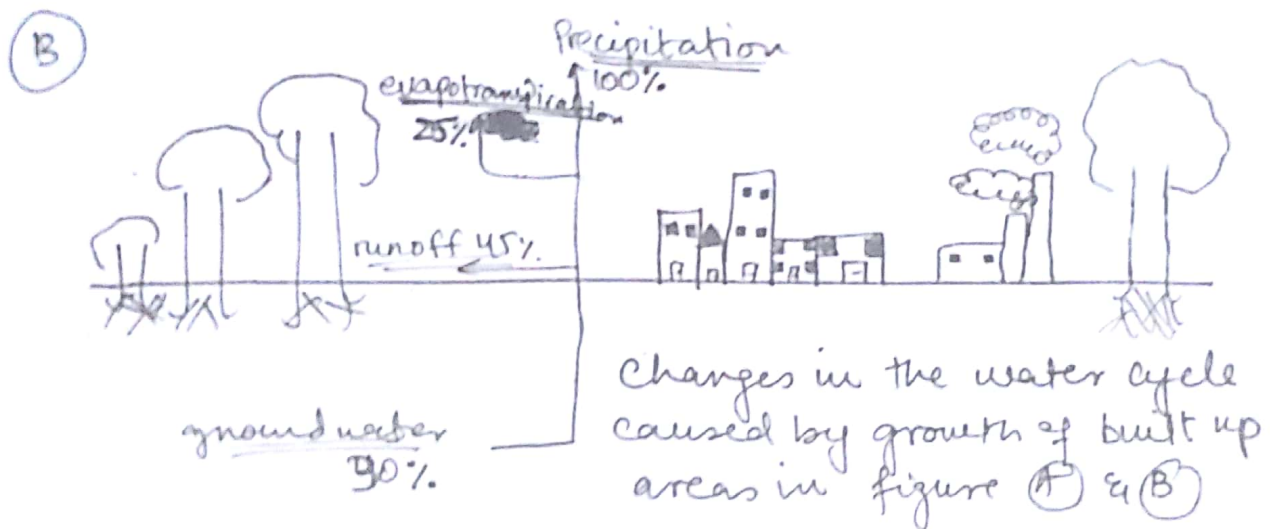 B
Precipitation
100%
evapotranspiration
25%
runoff 45%
groundwater
30%
changes in the water cycle
caused by growth of built up
areas in figure A & B